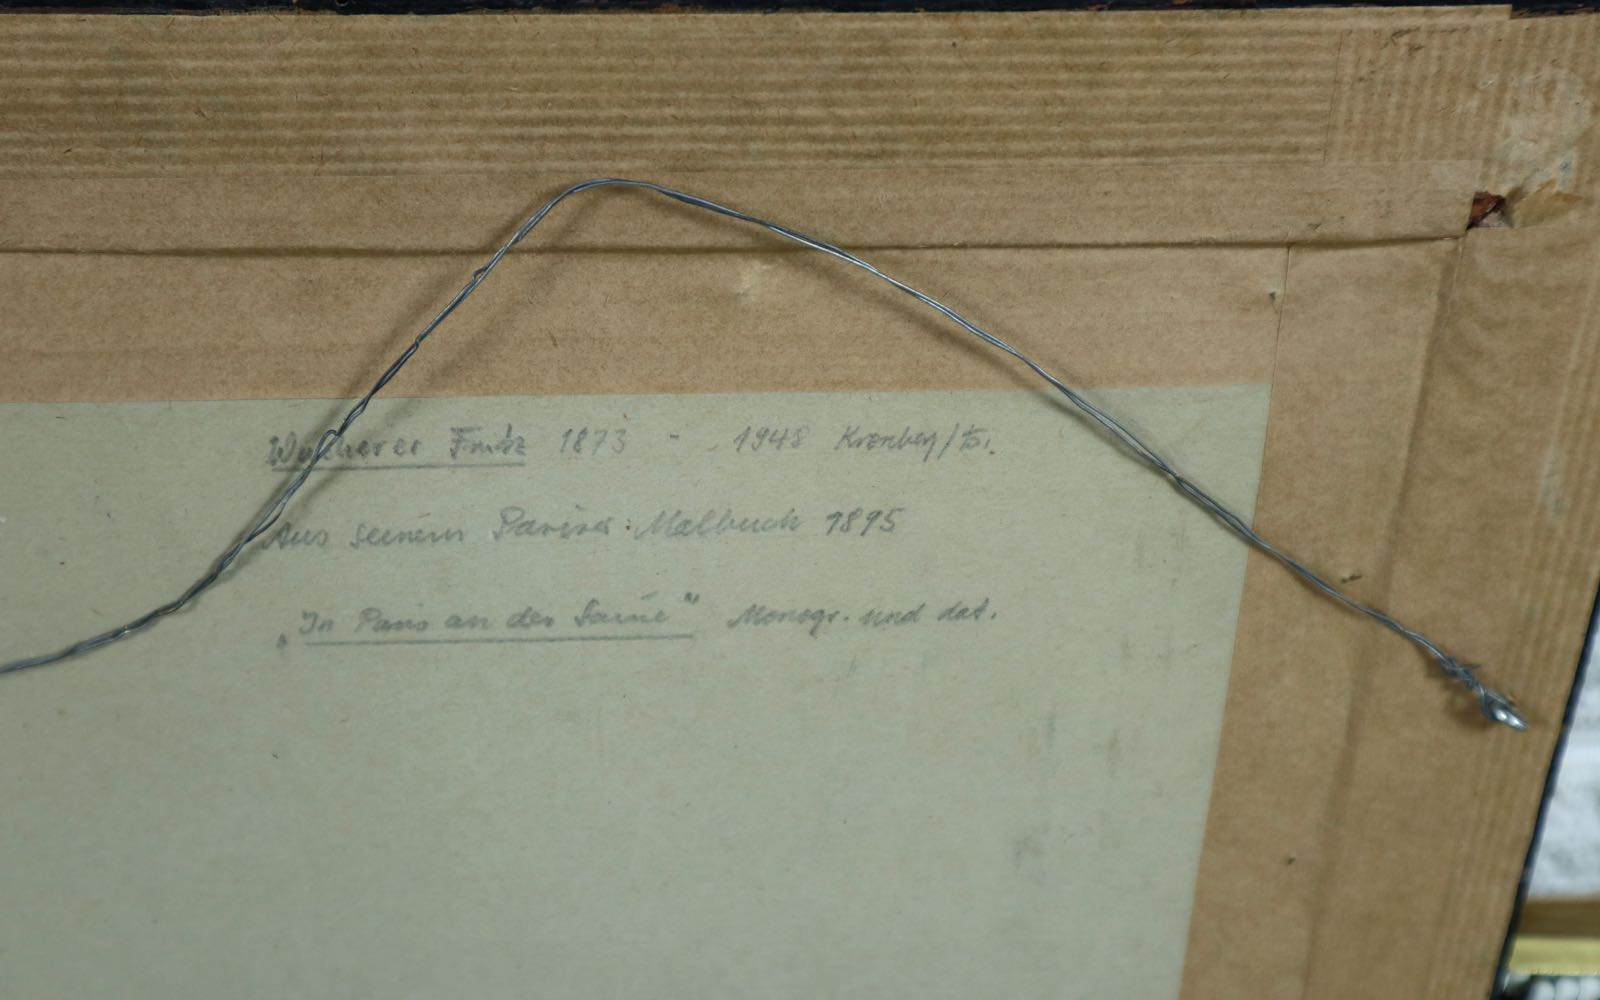 Wucherer Fritz 1873 - 1948 Kronberg/Ts.
Aus seinem Pariser Malbuch 1895
„In Paris an der Seine" Monogr. und dat.